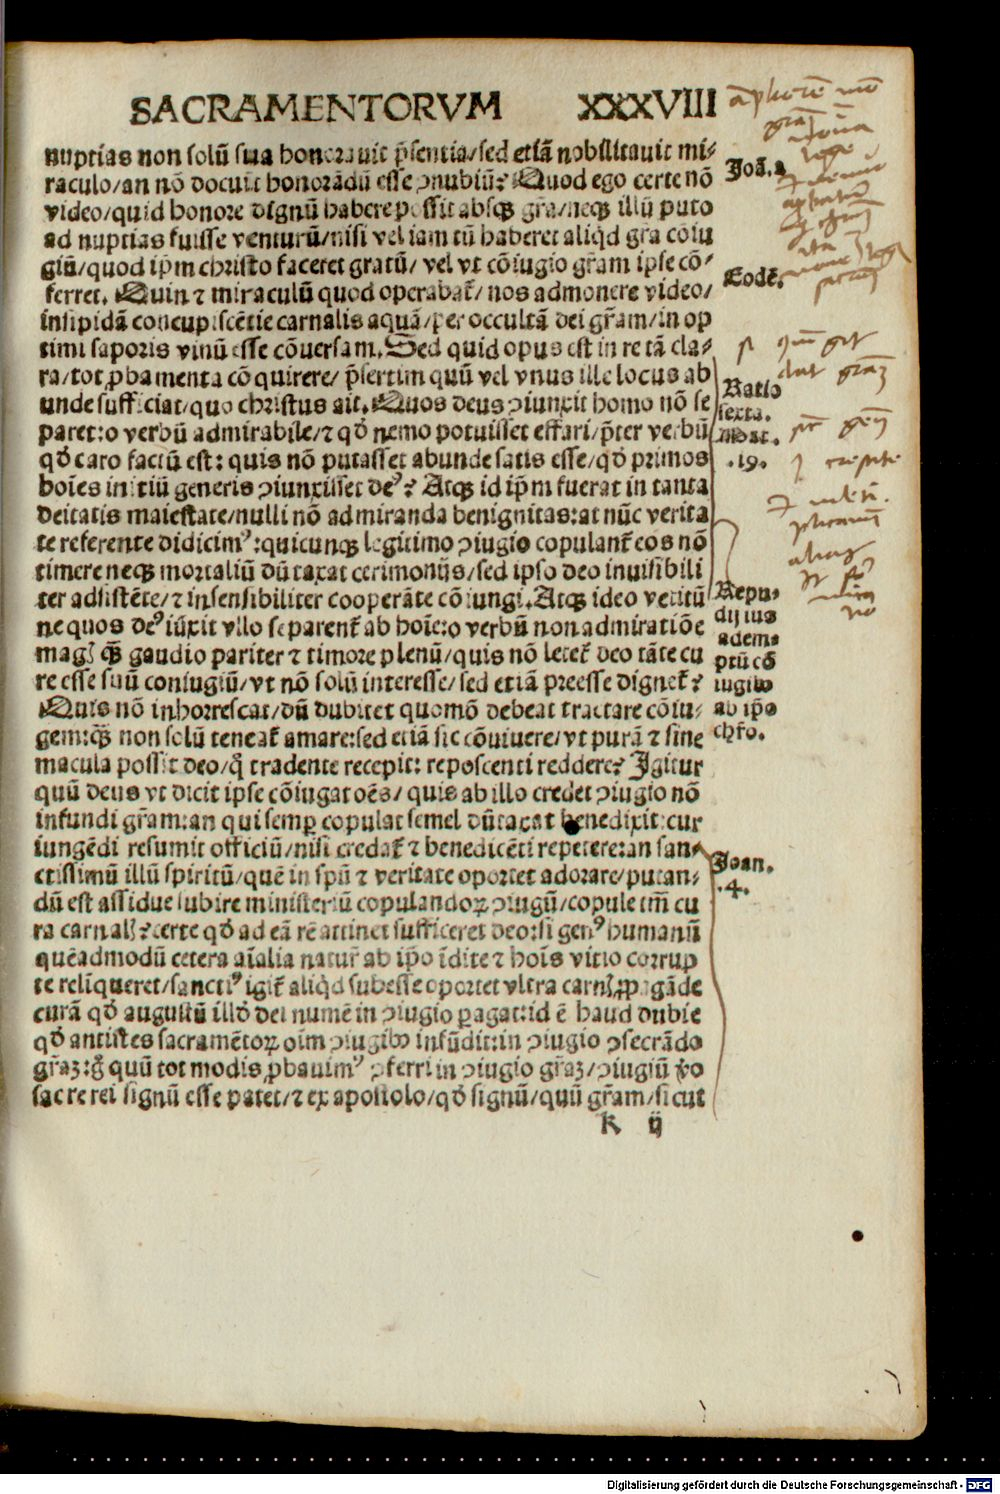 SACRAMENTORVM XXXVIII
nuptias non solū sua honorauit p̄sentia/sed etiā nobilitauit mi⸗
raculo/an nō docuit honorādū esse ↄnubiū? Quod ego certe nō
video/quid honore dignū habere possit absqꝫ gr̄a/neqꝫ illū puto
ad nuptias fuisse venturū/nisi vel iam tū haberet aliqd̄ gr̄a coiu
giū/quod ip̄m christo faceret gratū/ vel vt cōiugio gr̄am ipse cō⸗
ferret. Quin ⁊ miraculū quod operabat̄/ nos admonere video/
insipidā concupiscētie carnalis aquā/per occultā dei gr̄am/in op
timi saporis vinū esse cōuersam. Sed quid opus est in re tā cla⸗
ra/tot ꝓbamenta cōquirere/ p̄sertim quū vel vnus ille locus ab
unde sufficiat/quo christus ait. Quos deus ↄiunxit homo nō se
paret:o verbū admirabile/⁊ qd̄ nemo potuisset effari/p̄ter verbū
qd̄ caro factū est: quis nō putasset abunde satis esse/qd̄ primos
hoīes initiū generis ↄiunxisset deꝰ? Atqꝫ id ip̄m fuerat in tanta
deitatis maiestate/nulli nō admiranda benignitas:at nūc verita
te referente didicimꝰ:quicunqꝫ legitimo ↄiugio copulant̄ eos nō
timere neqꝫ mortaliū dūtaxat cerimonijs/sed ipso deo inuisibili
ter adsistēte/⁊ insensibiliter cooperāte cōiungi. Atqꝫ ideo vetitū
ne quos deꝰ iūxit vllo separent̄ ab hoīe:o verbū non admiratiōe
magꝭ qꝫ̄ gaudio pariter ⁊ timore plenū/quis nō letet̄ deo tāte cu
re esse suū coniugiū/vt nō solū interesse/sed etiā preesse dignet̄?
Quis nō inhorrescat/dū dubitet quomō debeat tractare cōiu⸗
gem:qꝫ̄ non solū teneat̄ amare:sed etiā sic cōuiuere/vt purā ⁊ sine
macula possit deo/q̄ tradente recepit: reposcenti reddere? Igitur
quū deus vt dicit ipse cōiugat oēs/ quis ab illo credet ↄiugio nō
infundi gr̄am:an qui semꝑ copulat semel dūtaxat benedixit:cur
iungēdi resumit officiū/nisi credat̄ ⁊ benedicēti repetere:an san⸗
ctissimū illū spiritū/quē in spū ⁊ veritate oportet adorare/putan⸗
dū est assidue subire ministeriū copulandoꝝ ↄiugū/copule tm̄ cu
ra carnalꝭ? certe qd̄ ad eā rē attinet sufficeret deo:si genꝰ humanū
quēadmodū cetera aīalia natur̄ ab ip̄o īdite ⁊ hoīs vitio corrup
te relīqueret/sanctiꝰ igit̄ aliqd̄ subesse oportet vltra carnꝭ ꝓpagāde
curā qd̄ augustū illd̄ dei numē in ↄiugio ꝑagat:id ē haud dubie
qd̄ antistes sacramētoꝝ oīm ↄiugibꝰ infūdit:in ↄiugio ↄsecrādo
gr̄aꝫ:g̊ quū tot modis ꝓbauimꝰ ↄferri in ↄiugio gr̄aꝫ/ↄiugiū v̊o
sacre rei signū esse patet/⁊ ex apostolo/qd̄ signū/quū gr̄am/sicut
k ij
Joā.2
Eodē.
Ratio
sexta.
Mat.
.19.
Repu⸗
dij ius
adem⸗
ptū cō
iugibꝰ
ab ip̄o
chr̄o.
Joan.
.4.
Digitalisierung gefördert durch die Deutsche Forschungsgemeinschaft - DFG